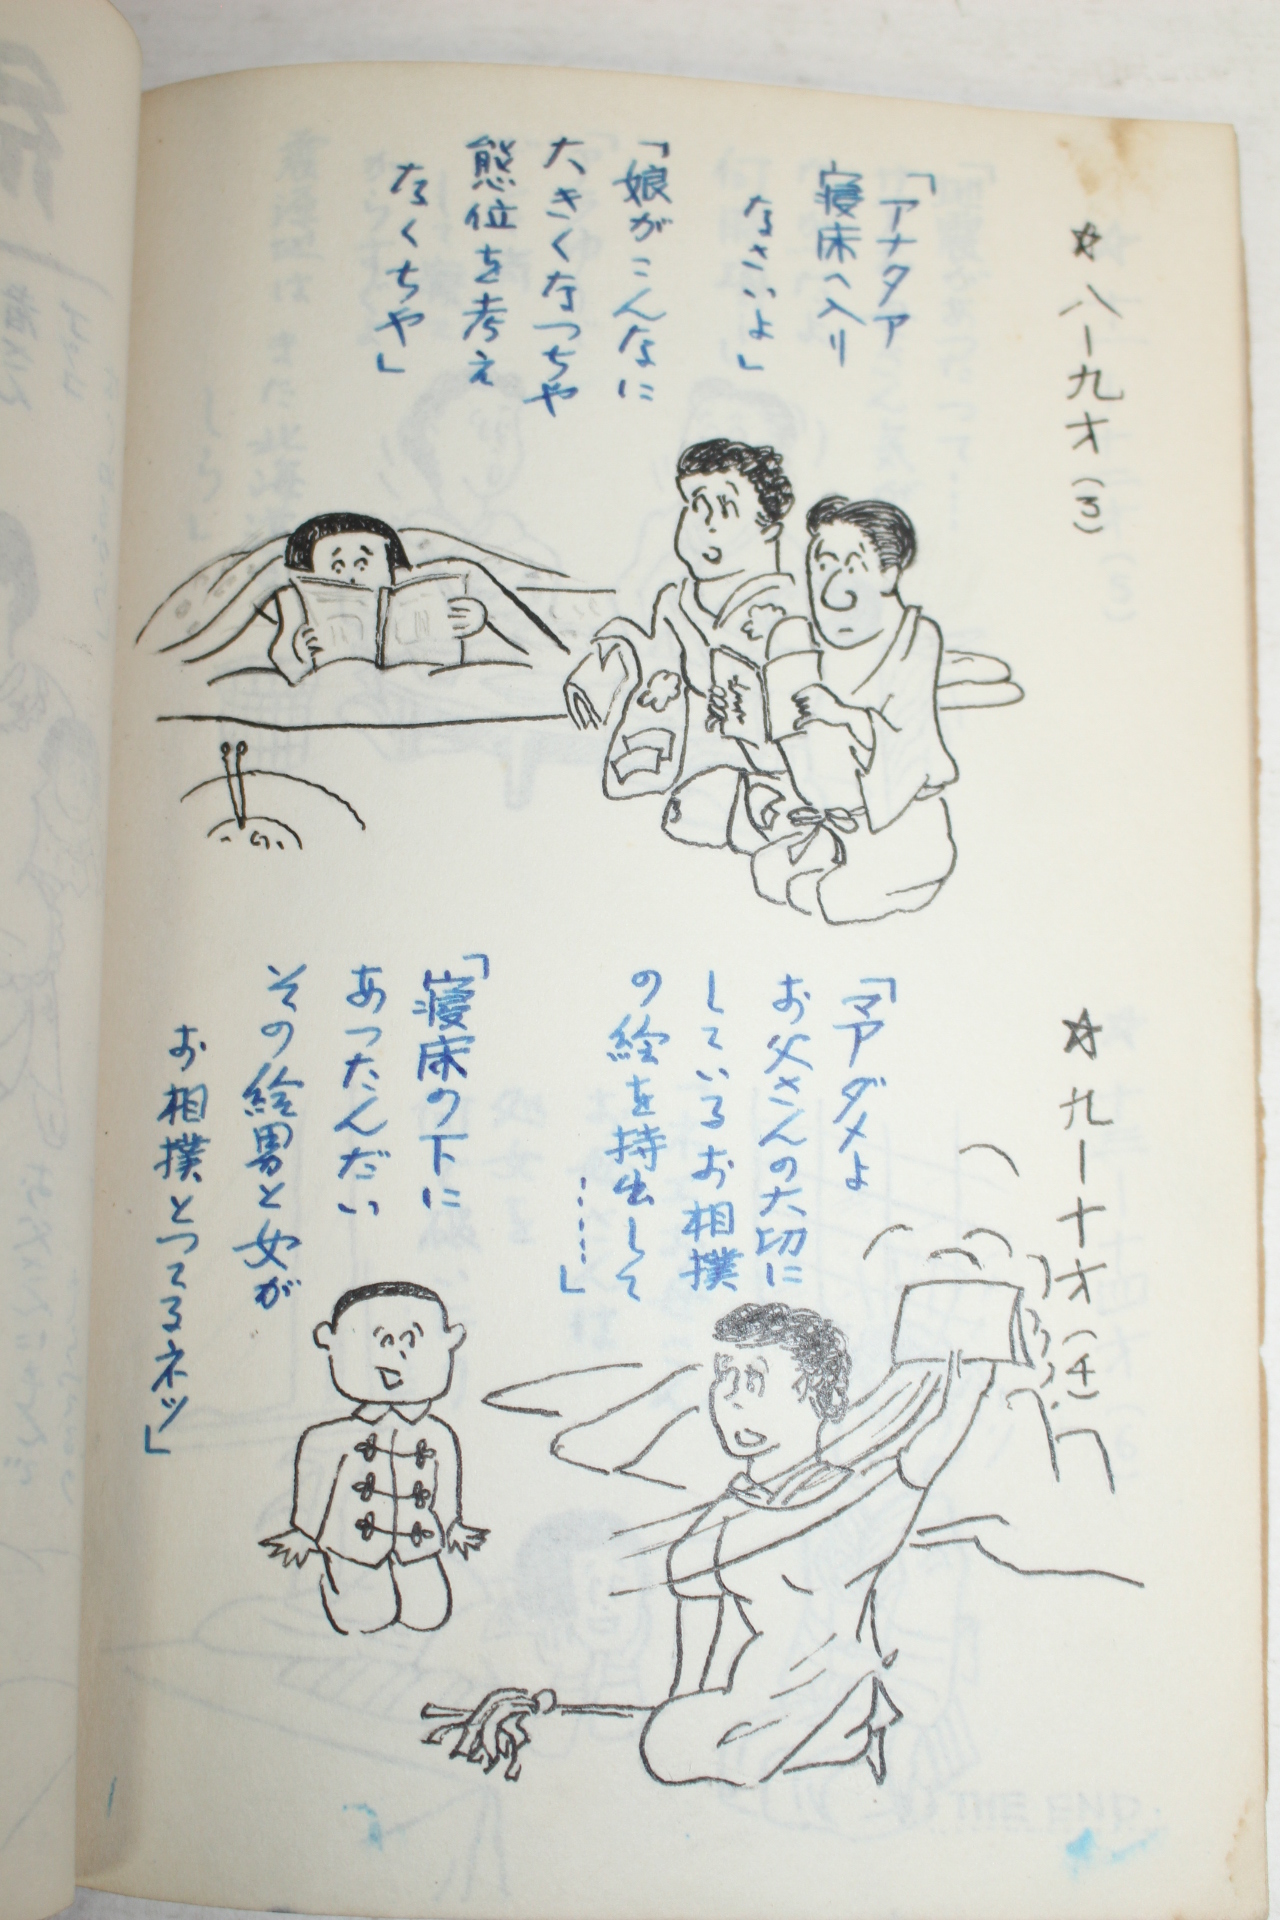 ☆八ー九才(ろ)
「アナタア
寝床へ入り
なさいよ」
「娘がこんなに
大きくなつちや
熊位を考え
なくちや」
☆九ー十才(千)
「マアダメよ
お父さんの大切に
しているお相撲
の絵を持出して
……」
「寝床の下に
あつたんだい
その絵男と女が
お相撲とつてるネッ」